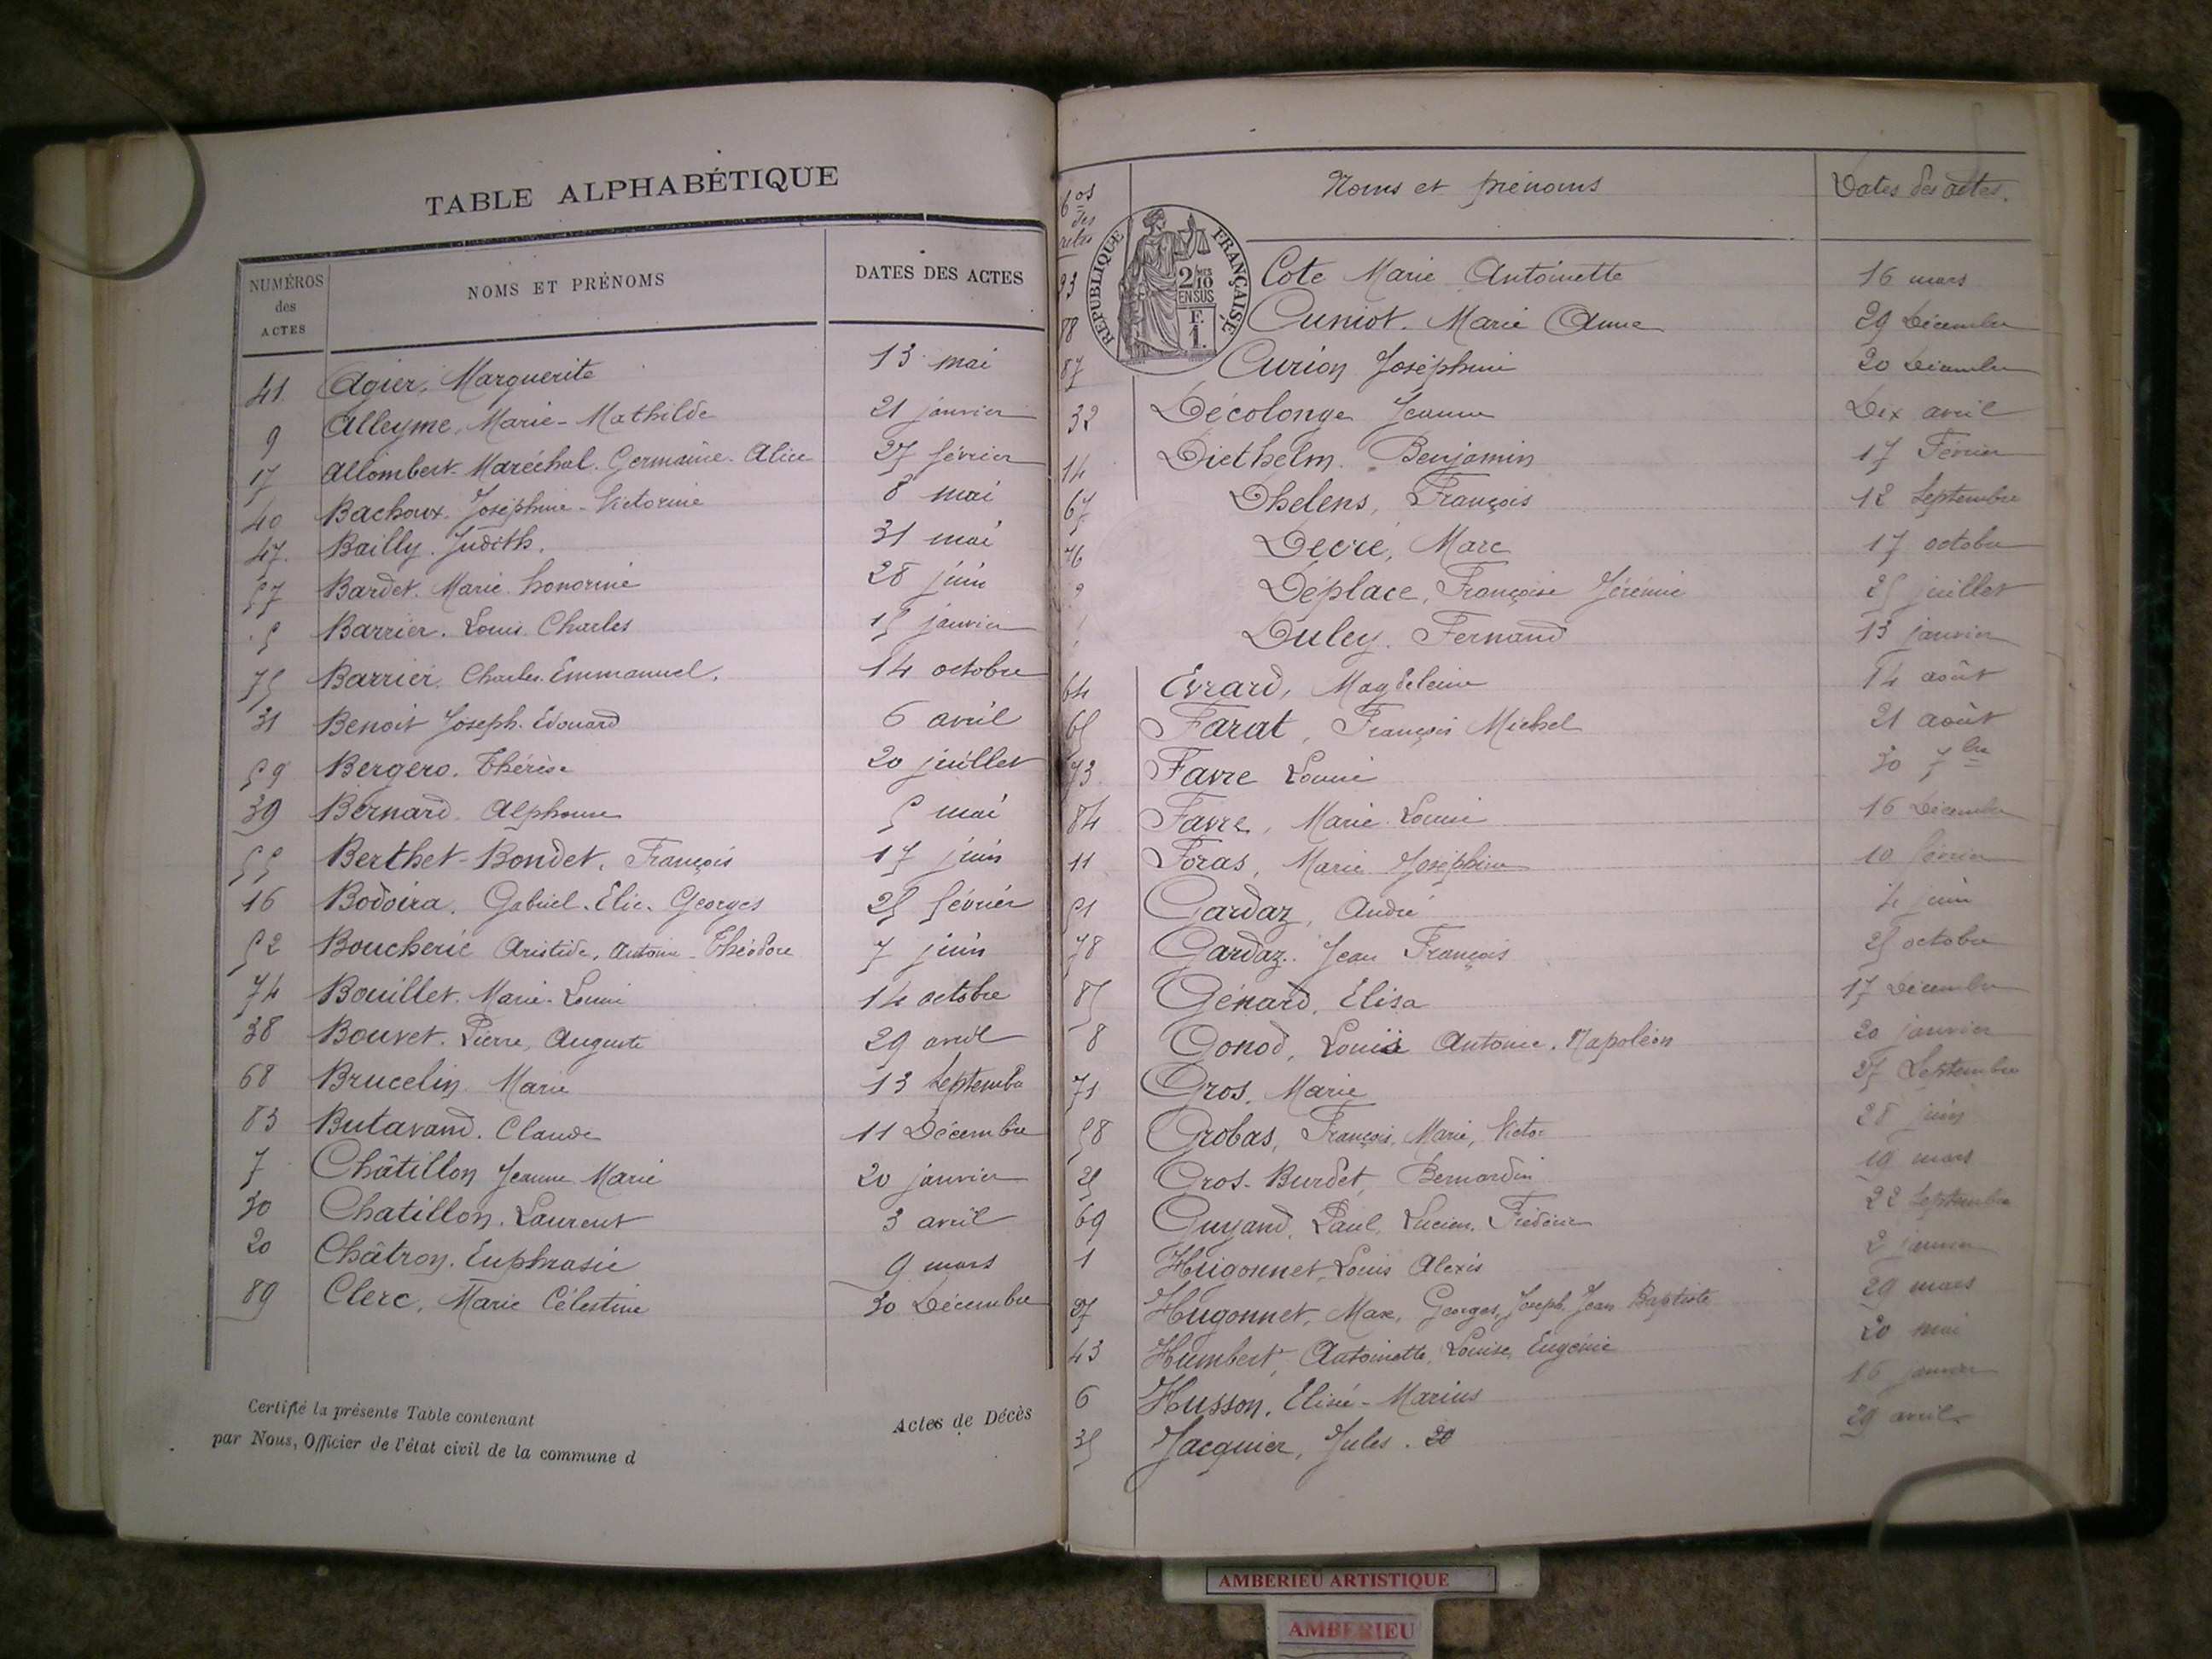 TABLE ALPHABÉTIQUE
NUMÉROS des ACTES NOMS ET PRÉNOMS DATES DES ACTES
41 Agier, Marguerite 13 mai
9 Alleyme, Marie-Mathilde 21 janvier
17 Allombert-Maréchal. Germaine-Alice 27 février
40 Bachoux. Joséphine-Victorine 8 mai
47. Bailly. Judith. 31 mai
57 Bardet. Marie honorine 28 juin
5 Barrier. Louis Charles 15 janvier
75 Barrier. Charles. Emmanuel. 14 octobre
31 Benoit Joseph. Edouard 6 avril
59 Bergero. Thérèse 20 juillet
39 Bernard. Alphonse 5 mai
55 Berthet-Bondet. François 17 juin
16 Bodoira. Gabriel. Elie. Georges 25 février
52 Boucherie Aristide, Antoine-Théodore 7 juin
74 Bouillet. Marie-Louise 14 octobre
38 Bouvet. Pierre, Auguste 29 avril
68 Brucelin Marie 13 Septembre
83 Butavand. Claude 11 Décembre
7 Châtillon Jeanne Marie 20 janvier
30 Chatillon. Laurent 3 avril
20 Châtron. Euphrasie 9 mars
89 Clerc, Marie Célestine 30 Décembre
Certifié la présente Table contenant Actes de Décès
par Nous, Officier de l'état civil de la commune d
os des actes Noms et prénoms Dates des actes.
RÉPUBLIQUE FRANÇAISE
2/10 EN SUS
F. 1.
23 Cote Marie Antoinette 16 mars
88 Cuniot. Marie Anne 29 Décembre
87 Curion Joséphine 20 Décembre
32 Décolonge Jeanne Dix avril
14 Diethelm. Benjamin 17 Février
67 Dhelens, François 12 Septembre
76 Decré, Marc 17 octobre
Déplace, Françoise Jérémie 25 juillet
Duley. Fernand 13 janvier
64 Evrard, Magdeleine 14 août
65 Farat, François Michel 21 août
73 Favre Louise 30 7bre
84 Favre, Marie Louise 16 Décembre
11 Foras, Marie Joséphine 10 février
51 Gardaz, André 4 juin
78 Gardaz. Jean François 25 octobre
85 Génard, Elisa 17 Décembre
8 Gonod, Louis Antonie. Napoléon 20 janvier
71 Gros, Marie 27 Septembre
58 Grobas, François, Marie, Victor 28 juin
25 Gros-Burdet, Bernardin 19 mars
69 Guyand, Paul, Lucien, Frédéric 22 Septembre
1 Hugonnet, Louis Alexis 2 janvier
27 Hugonnet, Max, Georges, Joseph, Jean Baptiste 29 mars
43 Humbert, Antoinette, Louise, Eugénie 20 mai
6 Husson, Elisé-Marius 16 janvier
35 Jacquier, Jules. 20 29 avril
AMBERIEU ARTISTIQUE
AMBERIEU